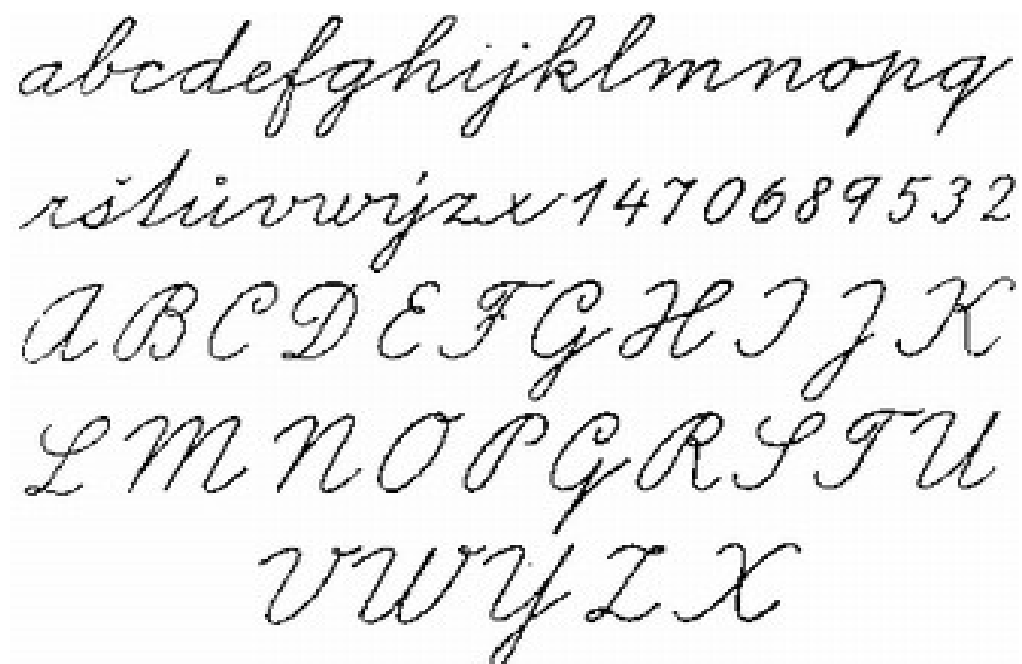 abcdefghijklmnopq
rštůvwýzx 1470689532
ABCDEFGHIJK
LMNOPQRSTU
VWYZX